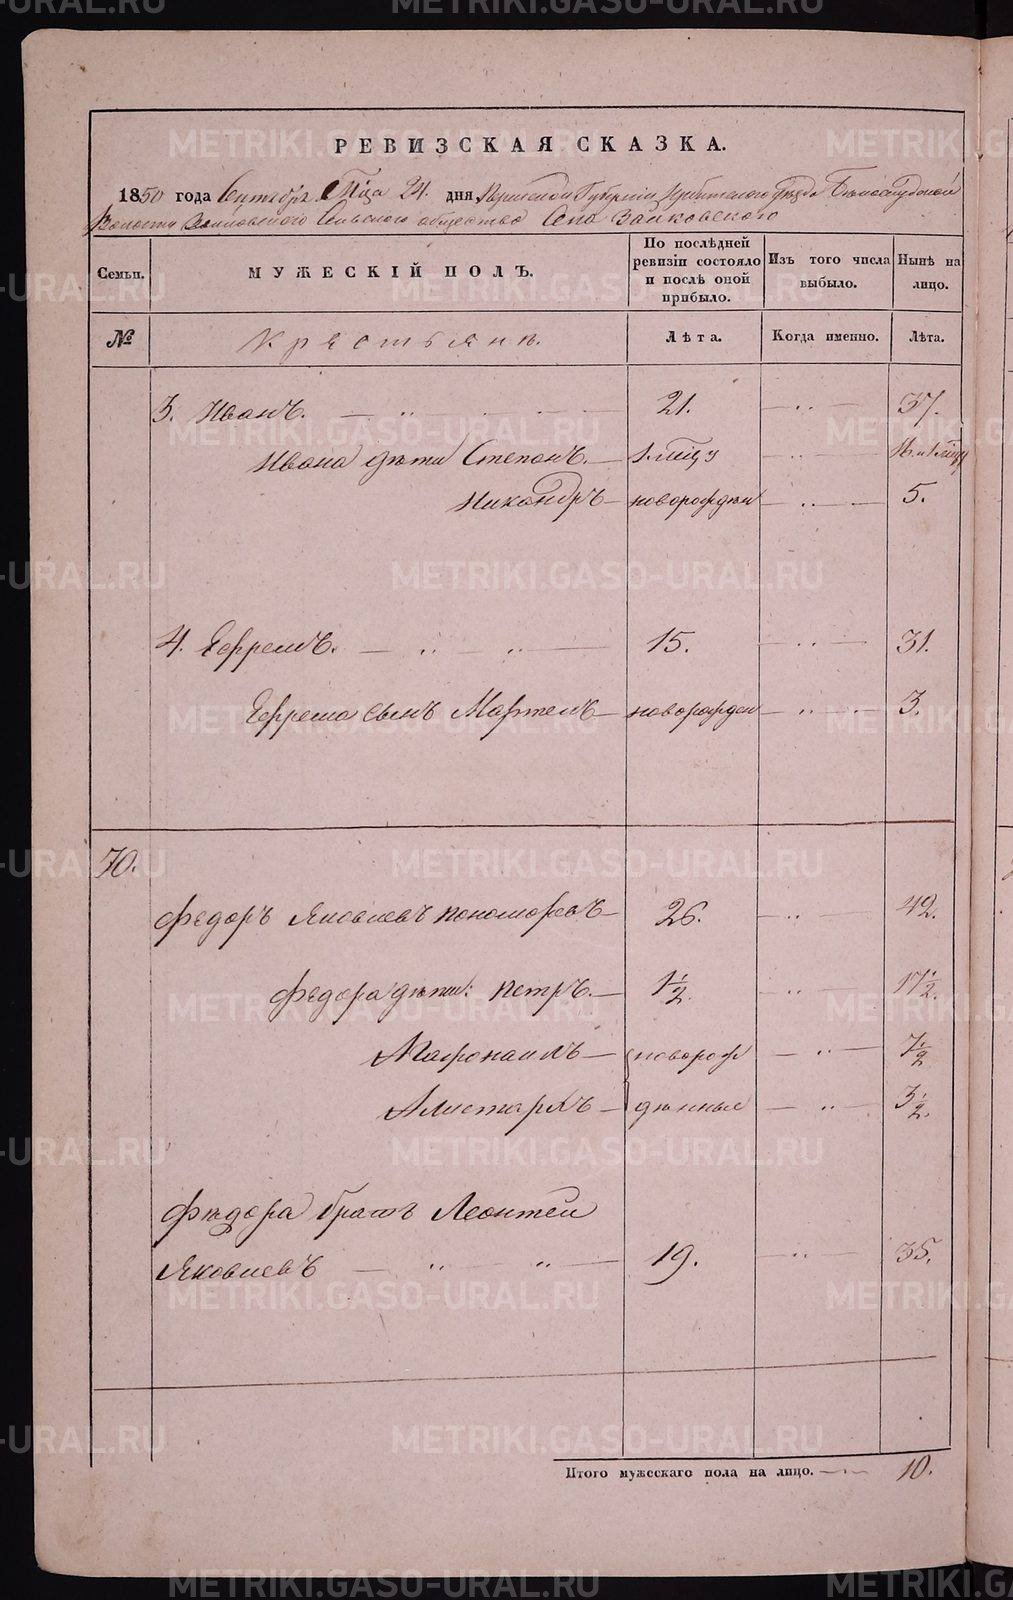 РЕВИЗСКАЯ СКАЗКА.
1850 года Сентября Мца 24. дня Пермской Губернии Ирбитского уезда Белослудской
Волости Зайковского Сельского общества Села Зайковского
Семьи.
МУЖЕСКІЙ ПОЛЪ.
По послѣдней ревизіи состояло и послѣ оной прибыло.
Изъ того числа выбыло.
Нынѣ на лицо.
№
Крестьяне.
Лѣта.
Когда именно.
Лѣта.
3. Иванъ. 21. 37.
Ивана дѣти Степанъ. 1. мцу
Никандръ новорожден 5.
4. Ефремъ. 15. 31.
Ефрема сынъ новорожден 3.
70.
Федоръ Яковлевъ Пономоревъ 26. 42.
Федора дѣти: Петръ. 1 1/2. 17 1/2.
новорож 7 1/2
Алистархъ денные 3 1/2.
Федора братъ Леонтей
Яковлевъ 19. 35.
Итого мужескаго пола на лицо. 10.
METRIKI.GASO-URAL.RU